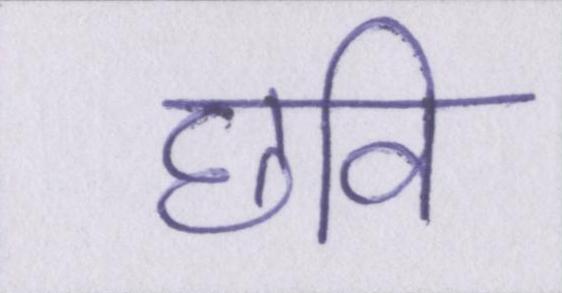 छवि